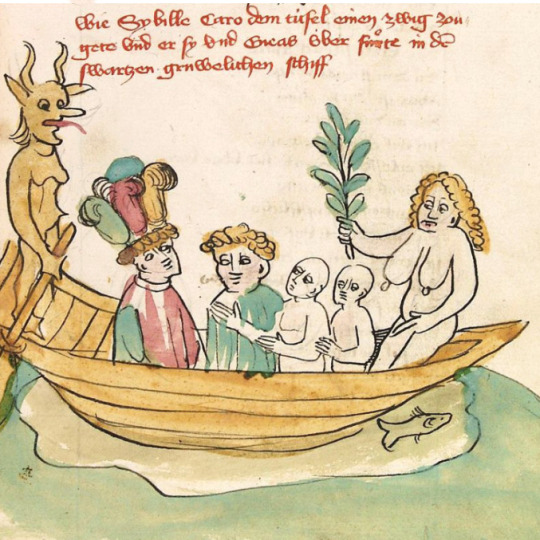 wie Sybille Caro dem tüfel einen zwig zou
gete vnd er sy vnd Eneas über fuͦrte in dē
swartzen gruwelichen schiff